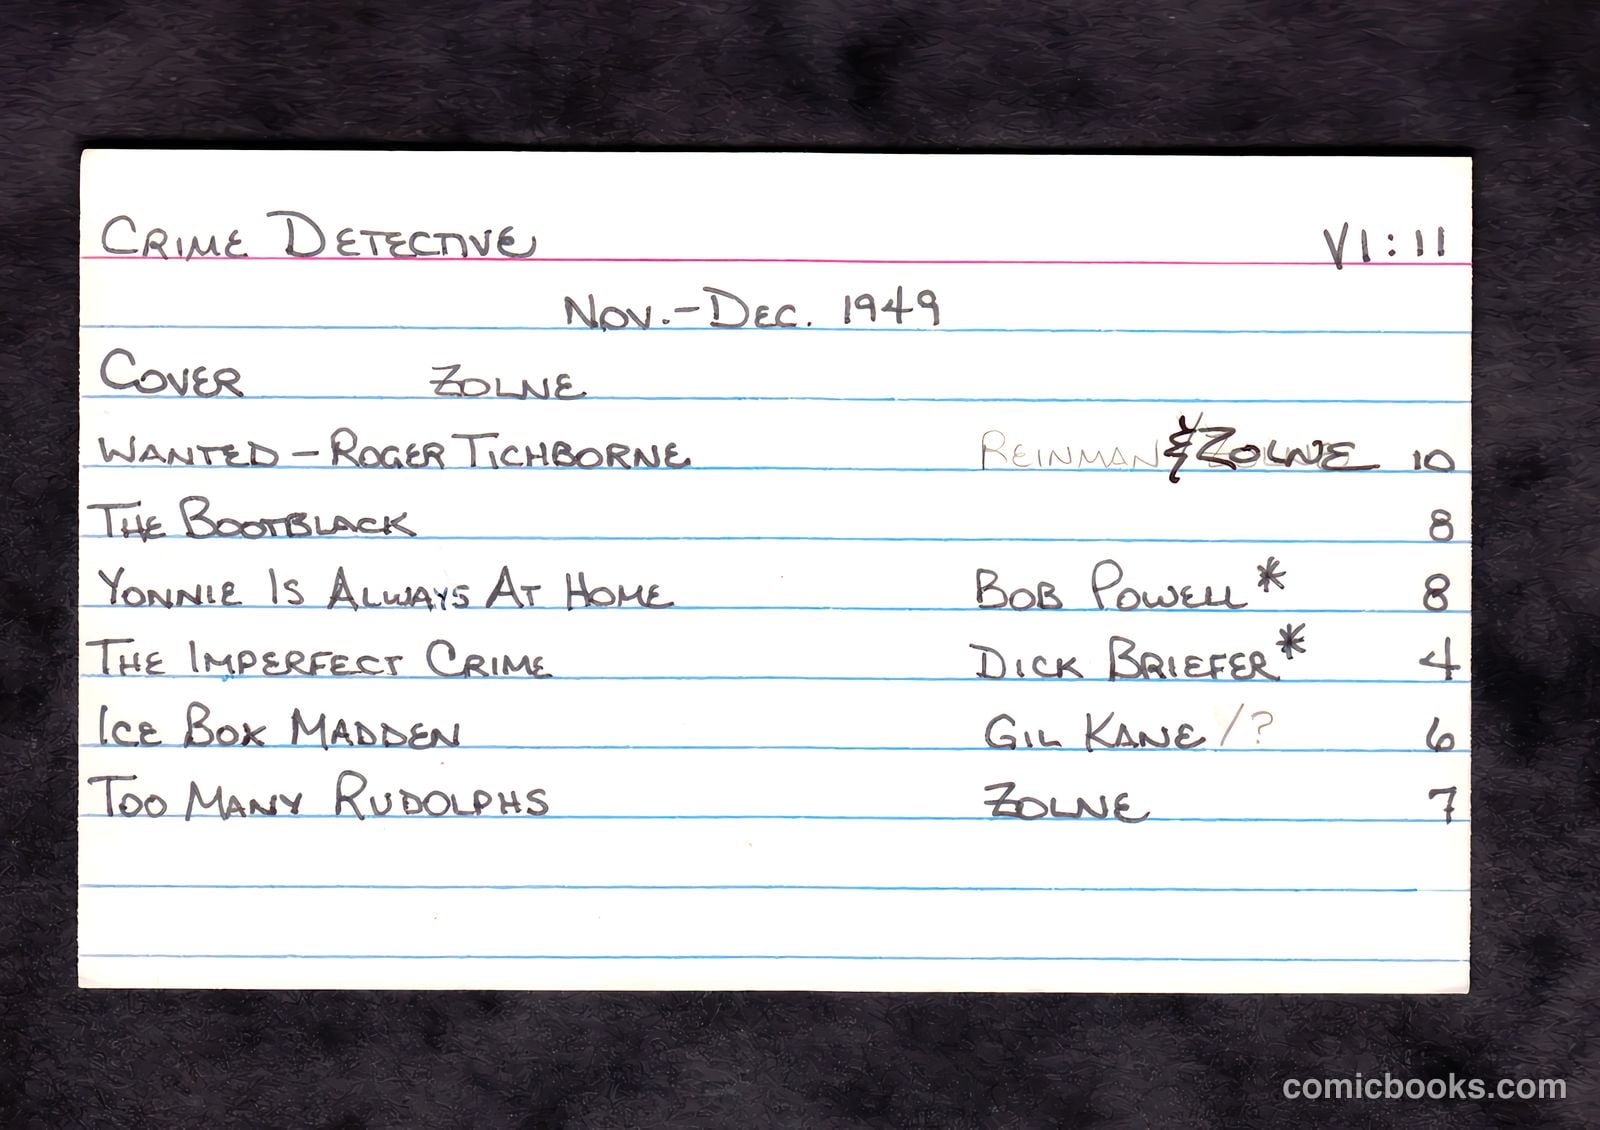 CRIME DETECTIVE V1:11
NOV.-DEC. 1949
COVER ZOLNE
WANTED - ROGER TICHBORNE REINMAN & ZOLNE 10
THE BOOTBLACK 8
YONNIE IS ALWAYS AT HOME BOB POWELL * 8
THE IMPERFECT CRIME DICK BRIEFER * 4
ICE BOX MADDEN GIL KANE /? 6
TOO MANY RUDOLPHS ZOLNE 7
comicbooks.com